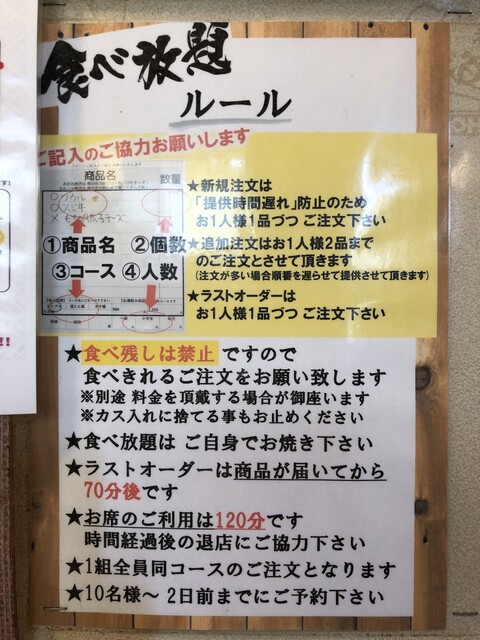 食べ放題
ルール
ご記入のご協力お願いします
商品名
数量
①商品名 ②個数
③コース ④人数
★新規注文は
「提供時間遅れ」防止のため
お1人様1品づつ ご注文下さい
★追加注文はお1人様2品まで
のご注文とさせて頂きます
(注文が多い場合順番を遅らせて提供させて頂きます)
★ラストオーダーは
お1人様1品づつ ご注文下さい
★食べ残しは禁止ですので
食べきれるご注文をお願い致します
※別途 料金を頂戴する場合が御座います
※カス入れに捨てる事もお止めください
★食べ放題は ご自身でお焼き下さい
★ラストオーダーは商品が届いてから
70分後です
★お席のご利用は120分です
時間経過後の退店にご協力下さい
★1組全員同コースのご注文となります
★10名様～ 2日前までにご予約下さい